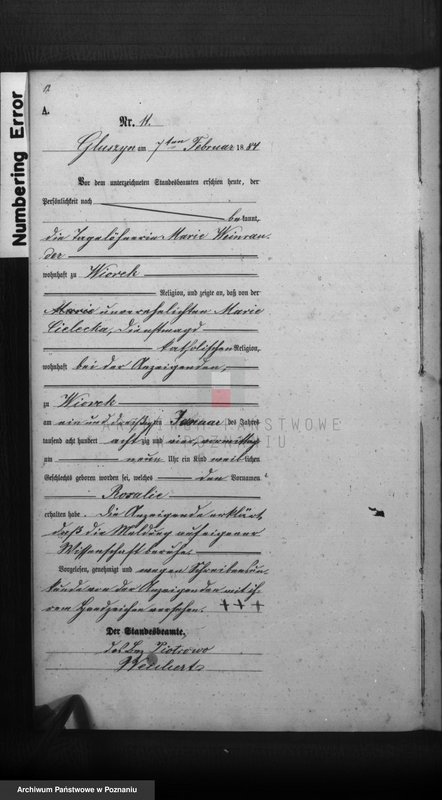 12
A.
Nr. 11.
Gluszyn am 7ten Februar 1884
Vor dem unterzeichneten Standesbeamten erschien heute, der
Persönlichkeit nach
bekannt,
die Tagelöhnerin Marie
der
wohnhaft zu Wiorek
Religion, und zeigte an, daß von der
Marie unverehelichten Marie
Cielecka, Dienstmagd
katholischen Religion,
wohnhaft bei der Anzeigenden,
zu Wiorek
am ein und dreißigsten Januar des Jahres
tausend acht hundert achtzig und vier, vormittags
um neun Uhr ein Kind weiblichen
Geschlechts geboren worden sei, welches den Vornamen
Rosalie
erhalten habe. Die Anzeigende erklärt
daß die Meldung auf eigener
Wissenschaft beruhe.
Vorgelesen, genehmigt und wegen Schreibensun-
kunde von der Anzeigenden mit ih-
rem Handzeichen versehen. +++
Der Standesbeamte,
Piotrowo
Numbering Error
ARCHIWUM PAŃSTWOWE
W POZNANIU
Archiwum Państwowe w Poznaniu